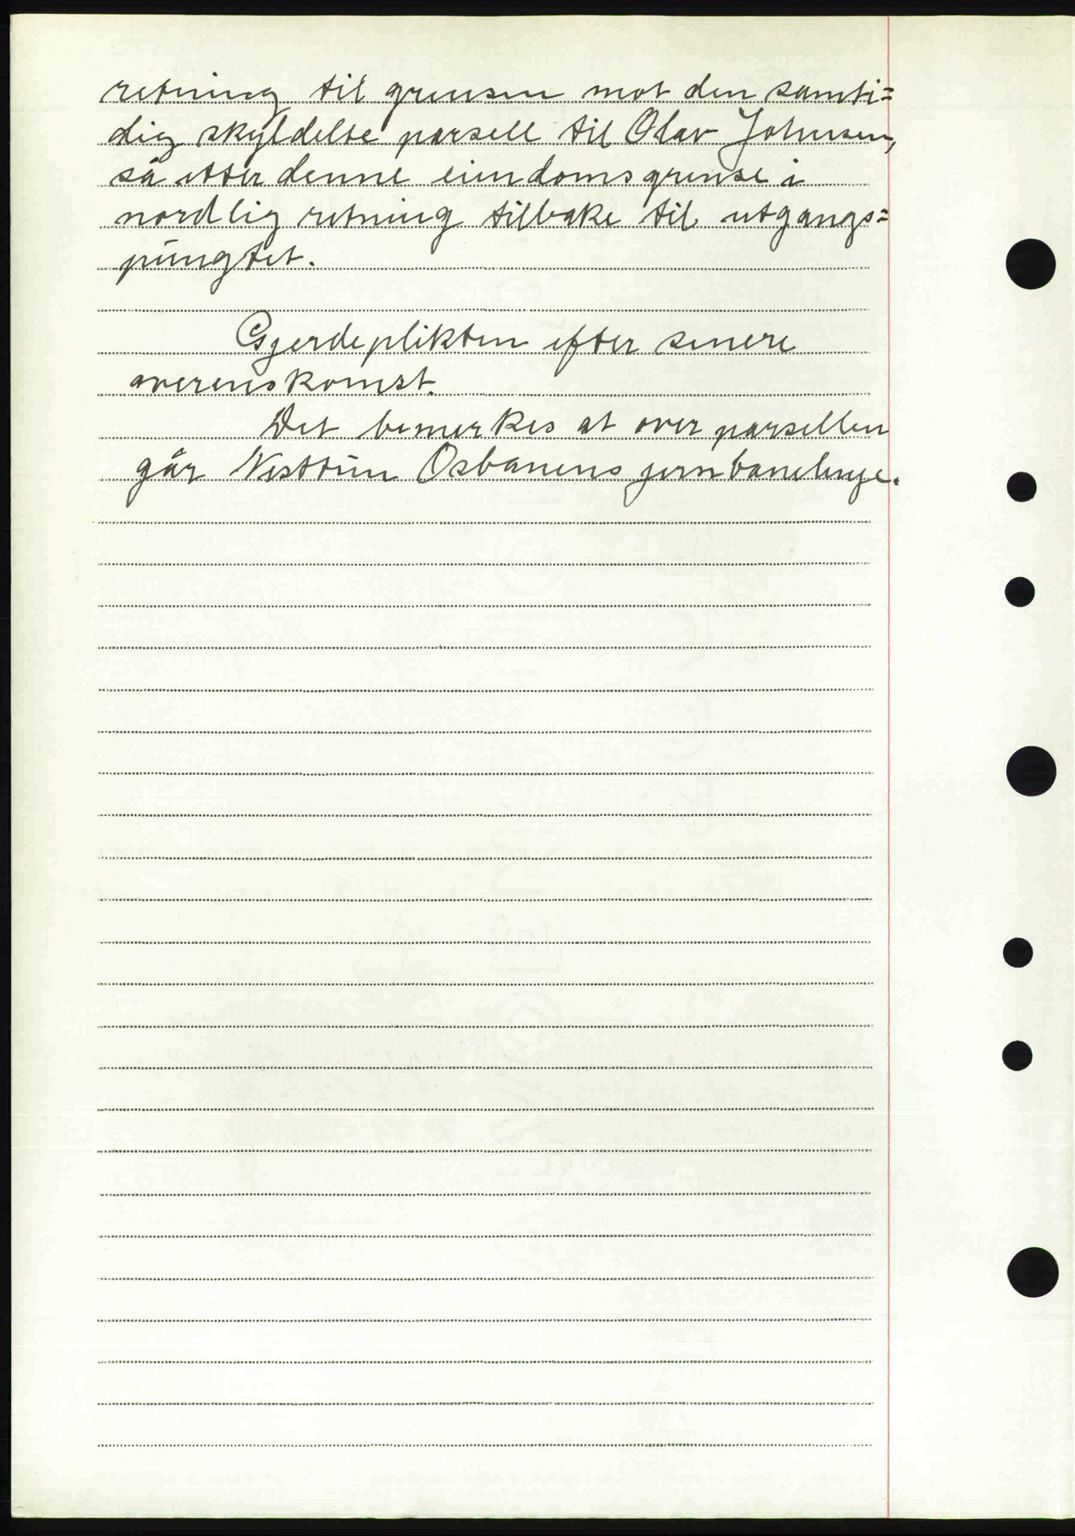 retning til grensen mot den samti=
dig skyldelte parsell til Olav Johnsen,
så etter denne eiendomsgrense i
nordlig retning tilbake til utgangs=
pungtet.
Gjerdeplikten efter senere
overenskomst.
Det bemerkes at over parsellen
går Nesttun Osbanens jernbanelinje.